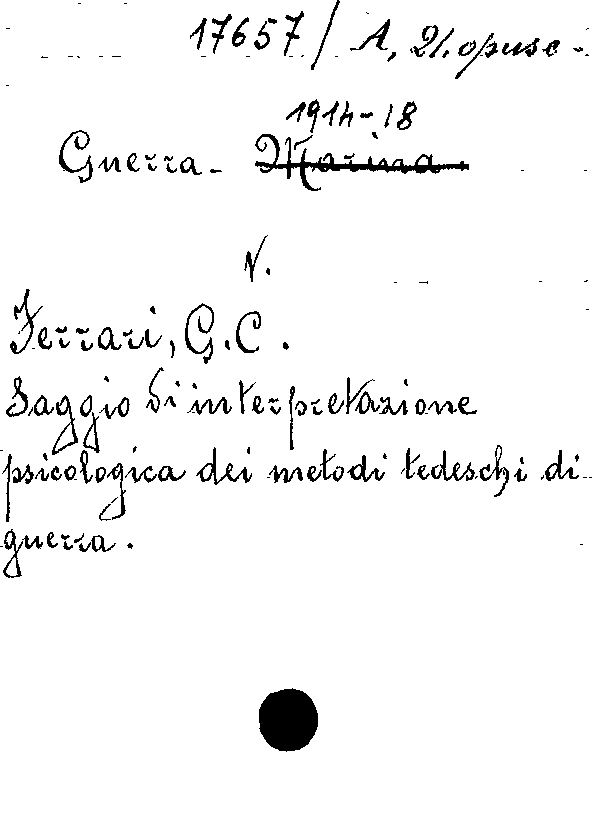 17657/ A, 21. opusc.
1914-18
Guerra. Marina.
V.
Ferrari, G. C.
Saggio di interpretazione
psicologica dei metodi tedeschi di
guerra.